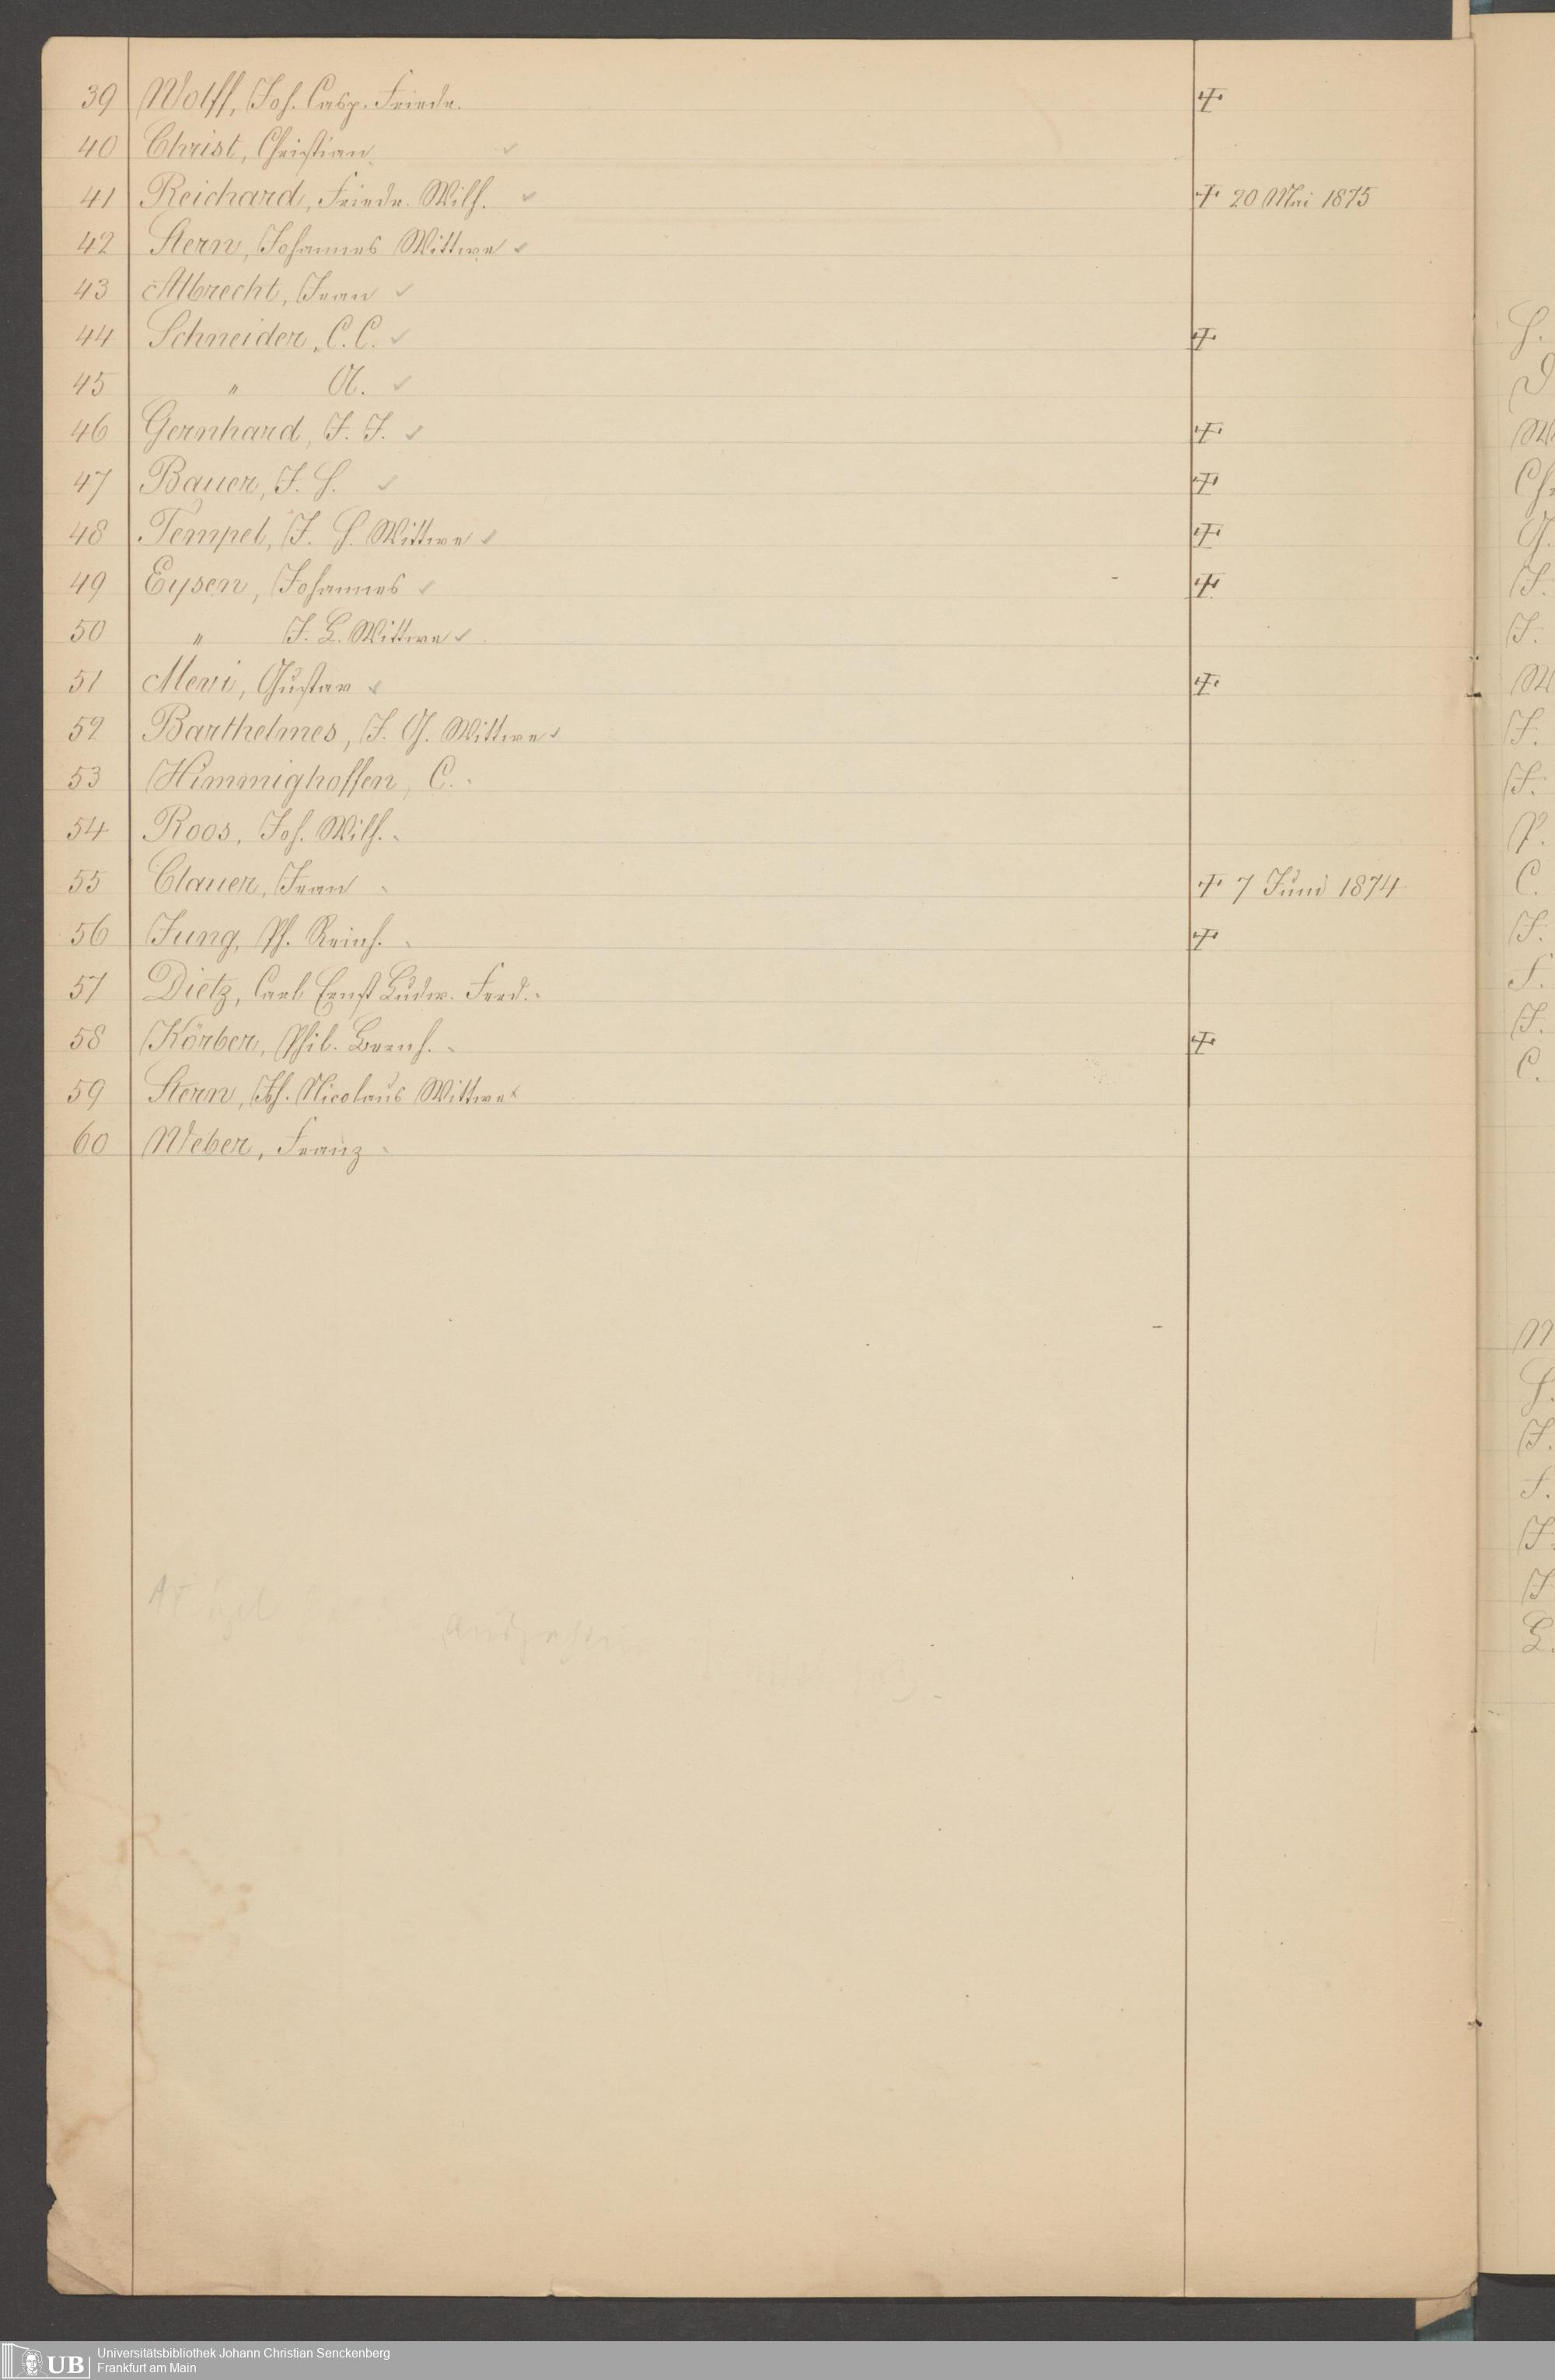 39 Wolff, Joh. Casp. Friedr. †
40 Christ, Christian. ✓
41 Reichard, Friedr. Wilh. ✓ † 20 Mai 1875
42 Stern, Johannes Wittwe ✓
43 Albrecht, Jean ✓
44 Schneider, C. C. ✓ †
45 " A. ✓
46 Gernhard, J. J. ✓ †
47 Bauer, J. H. ✓ †
48 Tempel, J. H. Wittwe ✓ †
49 Eysen, Johannes ✓ †
50 " J. L. Wittwe ✓
51 Mevi, Gustav ✓ †
52 Barthelmes, J. G. Wittwe ✓
53 Himmighoffen, C.
54 Roos, Joh. Wilh.
55 Clauer, Jean † 7 Juni 1874
56 Jung, Ph. Reinh. †
57 Dietz, Carl Ernst Ludw. Ferd.
58 Körber, Phil. Bernh. †
59 Stern, Joh. Nicolaus Wittwe
60 Weber, Franz
UB Universitätsbibliothek Johann Christian Senckenberg
Frankfurt am Main